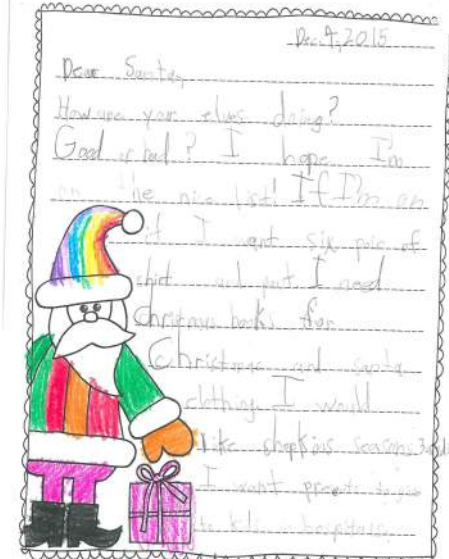 Dec. 4, 2015
Dear Santa,
How are your elves doing?
Good or bad? I hope I'm
on the nice list! If I'm on
it I want six pair of
shirt and pant I need
christmas books for
Christmas and santa
clothing I would
like shopkins seasons 3
I want presents to give
to kids in hospitals.